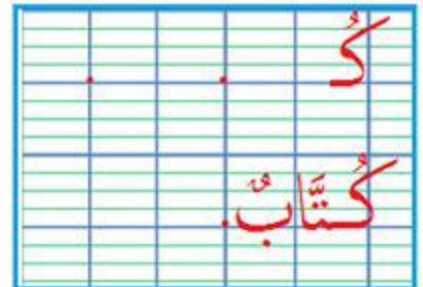 كُـ . .
كُتَّابٌ .